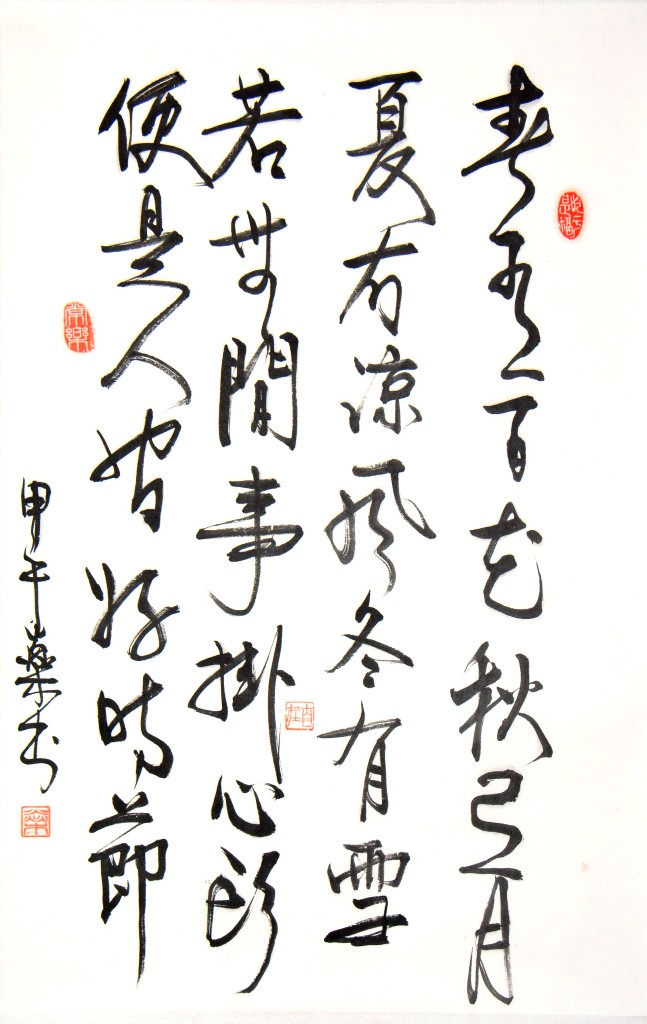 春有百花秋有月
夏有涼風冬有雪
若無閒事掛心頭
便是人間好時節
甲午 書